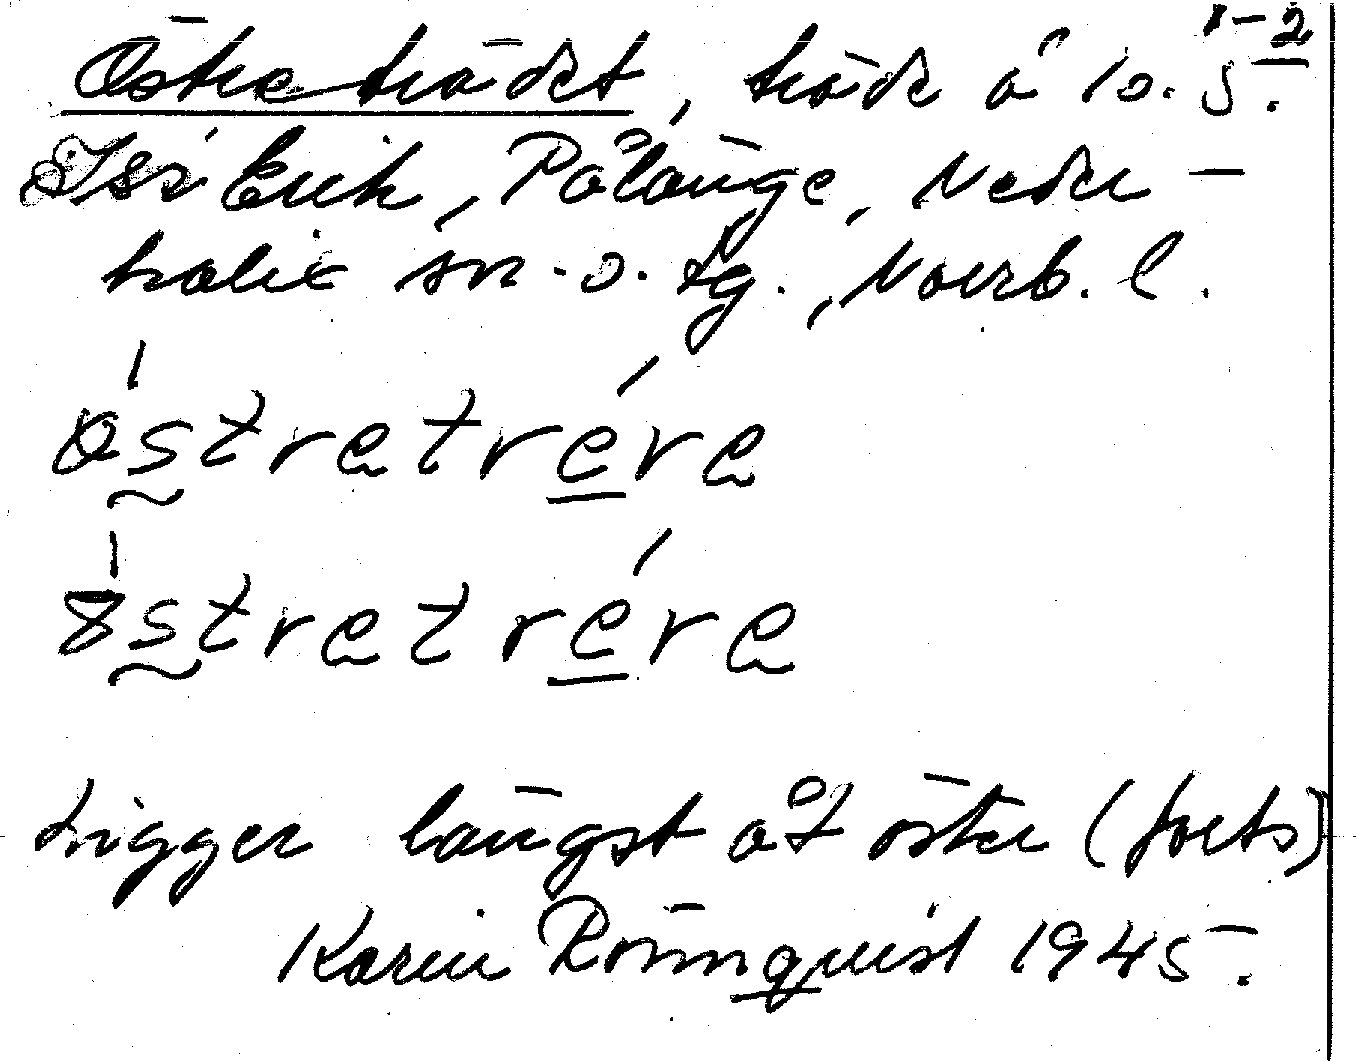 Österträdet, träde å 10. 5. 1-2
Erik, Pålänge, Neder-
kalix sn. o. tg., Norrb. l.
östretréve
östretréve
Ligger längst åt öster (forts)
Karin Rönnquist 1945.